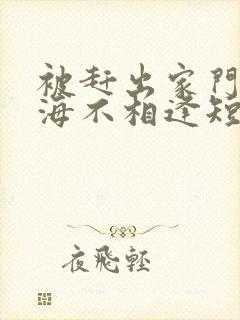 被赶出家門
海不相逢短
夜飛輕